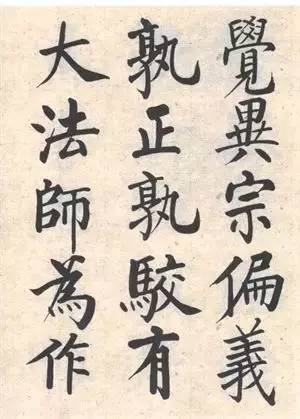 覺異宗偏義
孰正孰駮有
大法師為作